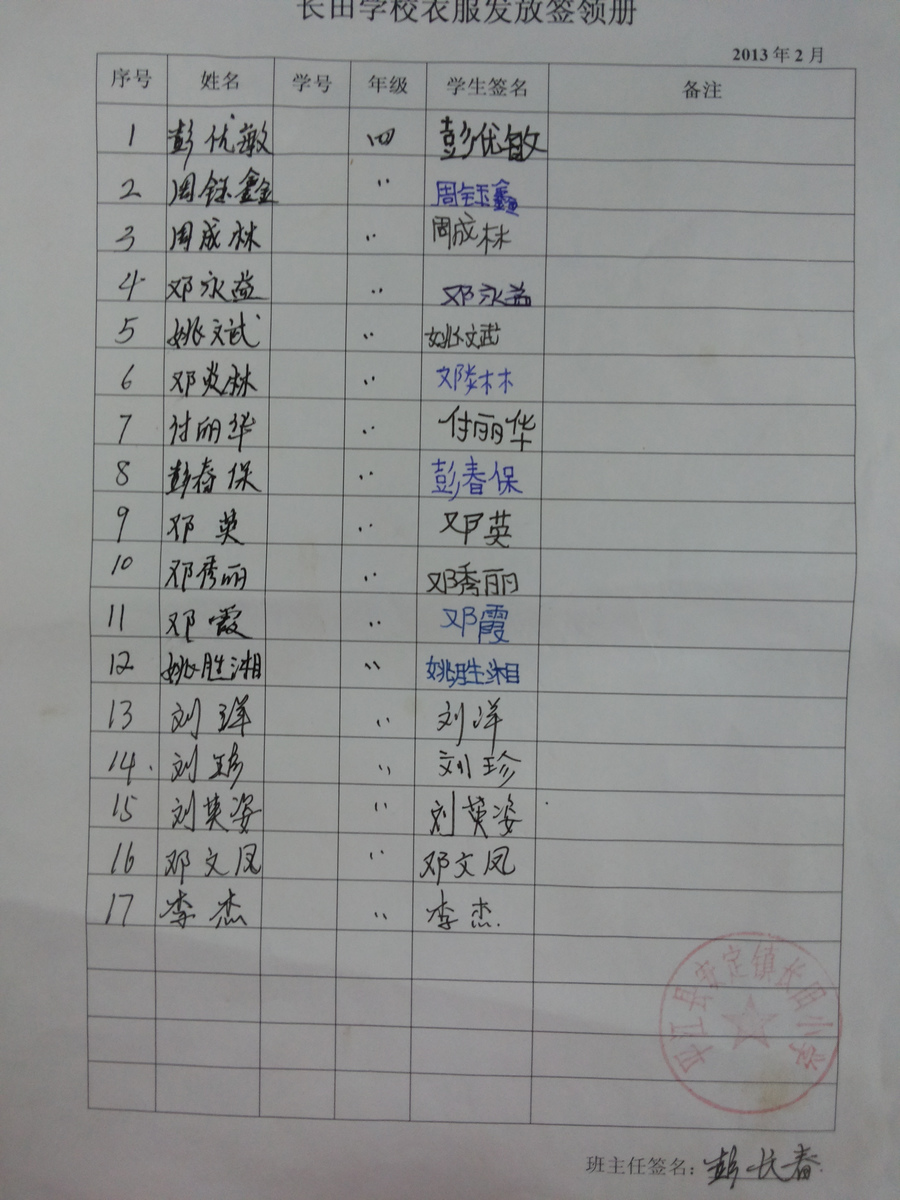 长田学校衣服发放签领册
2013年2月
序号 姓名 学号 年级 学生签名 备注
1 彭优敏 四 彭优敏
2 周钰鑫 〃 周钰鑫
3 周成林 〃 周成林
4 邓永益 〃 邓永益
5 姚文武 〃 姚文武
6 邓炎林 〃
7 付丽华 〃 付丽华
8 彭春保 〃 彭春保
9 邓英 〃 邓英
10 邓秀丽 〃 邓秀丽
11 邓霞 〃 邓霞
12 姚胜湘 〃 姚胜湘
13 刘洋 〃 刘洋
14 刘珍 〃 刘珍
15 刘英姿 〃 刘英姿
16 邓文凤 〃 邓文凤
17 李杰 〃 李杰
平江县安定镇长田小学
班主任签名：彭长春